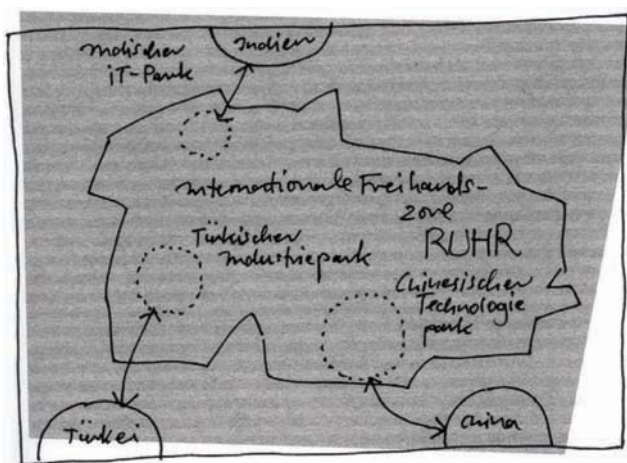 Indien
Indischer
IT-Park
Internationale Freihands-
zone
RUHR
Türkischer
Industriepark
Chinesischer
Technologie
park
Türkei
China